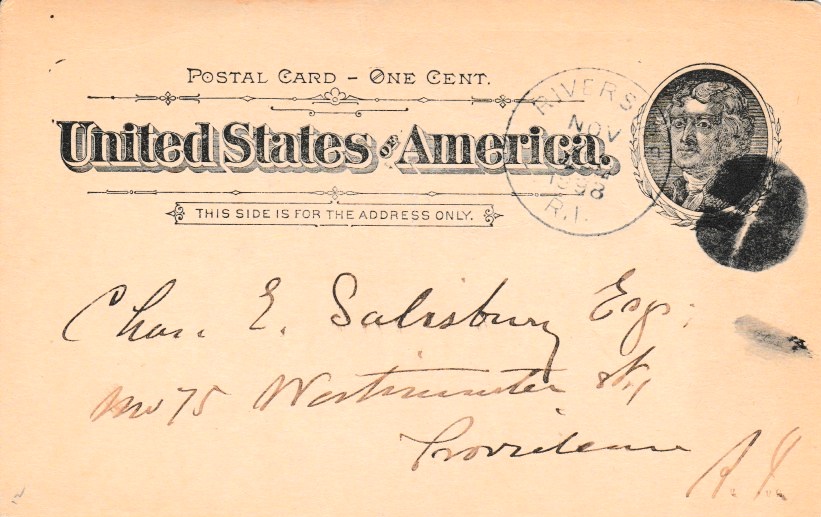 POSTAL CARD – ONE CENT.
United States OF America.
THIS SIDE IS FOR THE ADDRESS ONLY.
RIVERSIDE
NOV
1898
R.I.
Chas. E. Salisbury Esq.
No 75 Westminster St,
Providence
R.I.